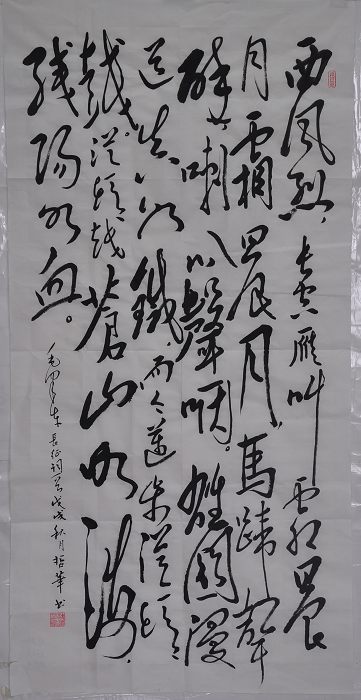 西風烈，長空雁叫霜晨
月霜晨月，馬蹄聲
碎，喇叭聲咽。雄關漫
道真如鐵，而今邁步從頭
越。從頭越蒼山如海，
殘陽如血。
毛澤東長征詞 戊戌秋月哲華书